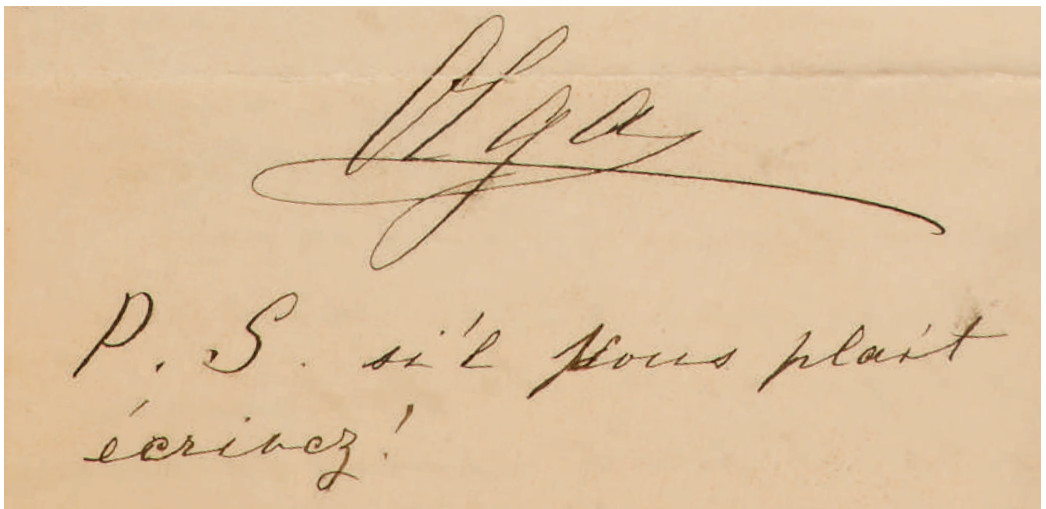 Olga
P. S. si'l vous plait
écrivez!